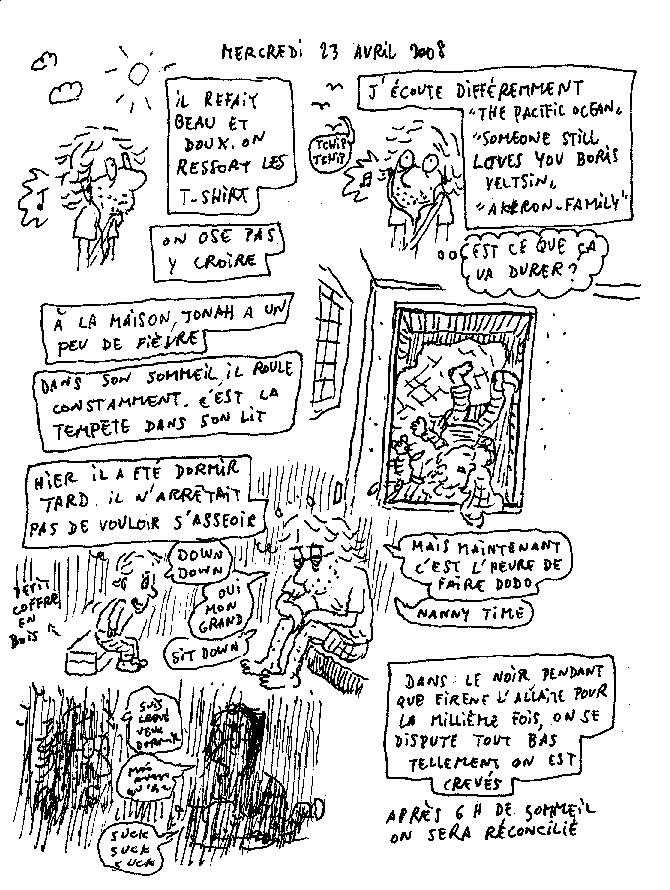 MERCREDI 23 AVRIL 2008
IL REFAIT
BEAU ET
DOUX. ON
RESSORT LES
T-SHIRT
J'ÉCOUTE DIFFÉREMMENT
"THE PACIFIC OCEAN"
"SOMEONE STILL
LOVES YOU BORIS
YELTSIN"
"AKERON-FAMILY"
TCHIP
TCHIP
ON OSE PAS
Y CROIRE
EST CE QUE ÇA
VA DURER?
À LA MAISON, JONAH A UN
PEU DE FIÈVRE
DANS SON SOMMEIL, IL ROULE
CONSTAMMENT. C'EST LA
TEMPÊTE DANS SON LIT
HIER IL A ÉTÉ DORMIR
TARD. IL N'ARRÊTAIT
PAS DE VOULOIR S'ASSEOIR
DOWN
DOWN
OUI
MON
GRAND
SIT DOWN
PETIT
COFFRE
EN
BOIS
MAIS MAINTENANT
C'EST L'HEURE DE
FAIRE DODO
NANNY TIME
SUIS
CREVÉ
VEUX
DORMIR
MOI
SUCK
SUCK
SUCK
DANS LE NOIR PENDANT
QUE EIRENE L'ALLAITE POUR
LA MILLIÈME FOIS, ON SE
DISPUTE TOUT BAS
TELLEMENT ON EST
CREVÉS
APRÈS 6 H DE SOMMEIL
ON SERA RÉCONCILIÉ